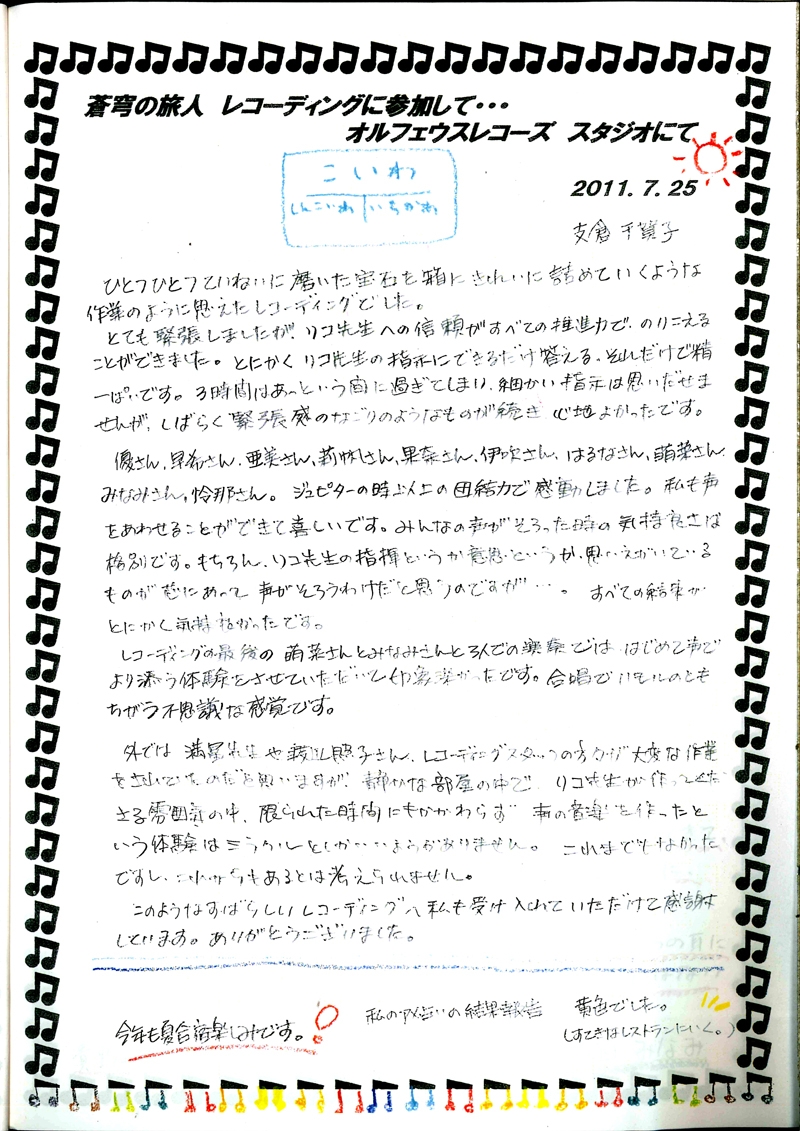 蒼穹の旅人 レコーディングに参加して・・・
オルフェウスレコーズ スタジオにて
こいわ
しんこいわ いちかわ
2011. 7. 25
支倉 千賀子
ひとつひとつていねいに磨いた宝石を箱にきれいに詰めていくような
作業のように思えたレコーディングでした。
とても緊張しましたが、リコ先生への信頼がすべての推進力で、のりこえる
ことができました。とにかくリコ先生の指示にできるだけ答える、それだけで精
一ぱいです。3時間はあっという間に過ぎてしまい、細かい指示は思いだせま
せんが、しばらく緊張感のなごりのようなものが続き 心地よかったです。
優さん、早希さん、亜美さん、莉帆さん、果奈さん、伊吹さん、はるなさん、萌菜さん
みなみさん、怜那さん。ジュピターの時以上の団結力で感動しました。私も声
をあわせることができて喜しいです。みんなの声がそろった時の気持良さは
格別です。もちろん、リコ先生の指揮というか意思というか、思いえがいている
ものが芯にあって 声がそろうわけだと思うのですが…。 すべての結果が
とにかく気持ねかったです。
レコーディングの最後の 萌菜さんとみなみさんと3人での演奏では、はじめて声で
より添う体験をさせていただいて印象深かったです。合唱で
ちがう不思議な感覚です。
外では 満尾先生や 照子さん、レコーディングスタッフの方々が大変な作業
をされていたのだと思いますが、静かな部屋の中で、リコ先生が作ってくだ
さる雰囲気の中、限られた時間にもかかわらず 声の音楽を作ったと
いう体験はミラクルとしかいいようがありません。 これまでもなかった
ですし、これからもあるとは考えられません。
このようなすばらしいレコーディングへ私も受け入れていただけて感謝
しています。ありがとうございました。
今年も夏合宿楽しみです。!
私のアメ占いの結果報告 黄色でした。
(すてきなレストランにいく。)